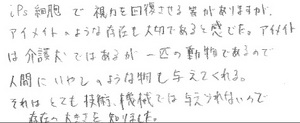 iPs細胞で視力を回復させる等がありますが、
アイメイトのような存在も大切であると感じた。アイメイト
は介護犬ではあるが一匹の動物であるので
人間にいやしのような物も与えてくれる。
それはとても技術、機械では与えられないので
存在の大きさを知りました。